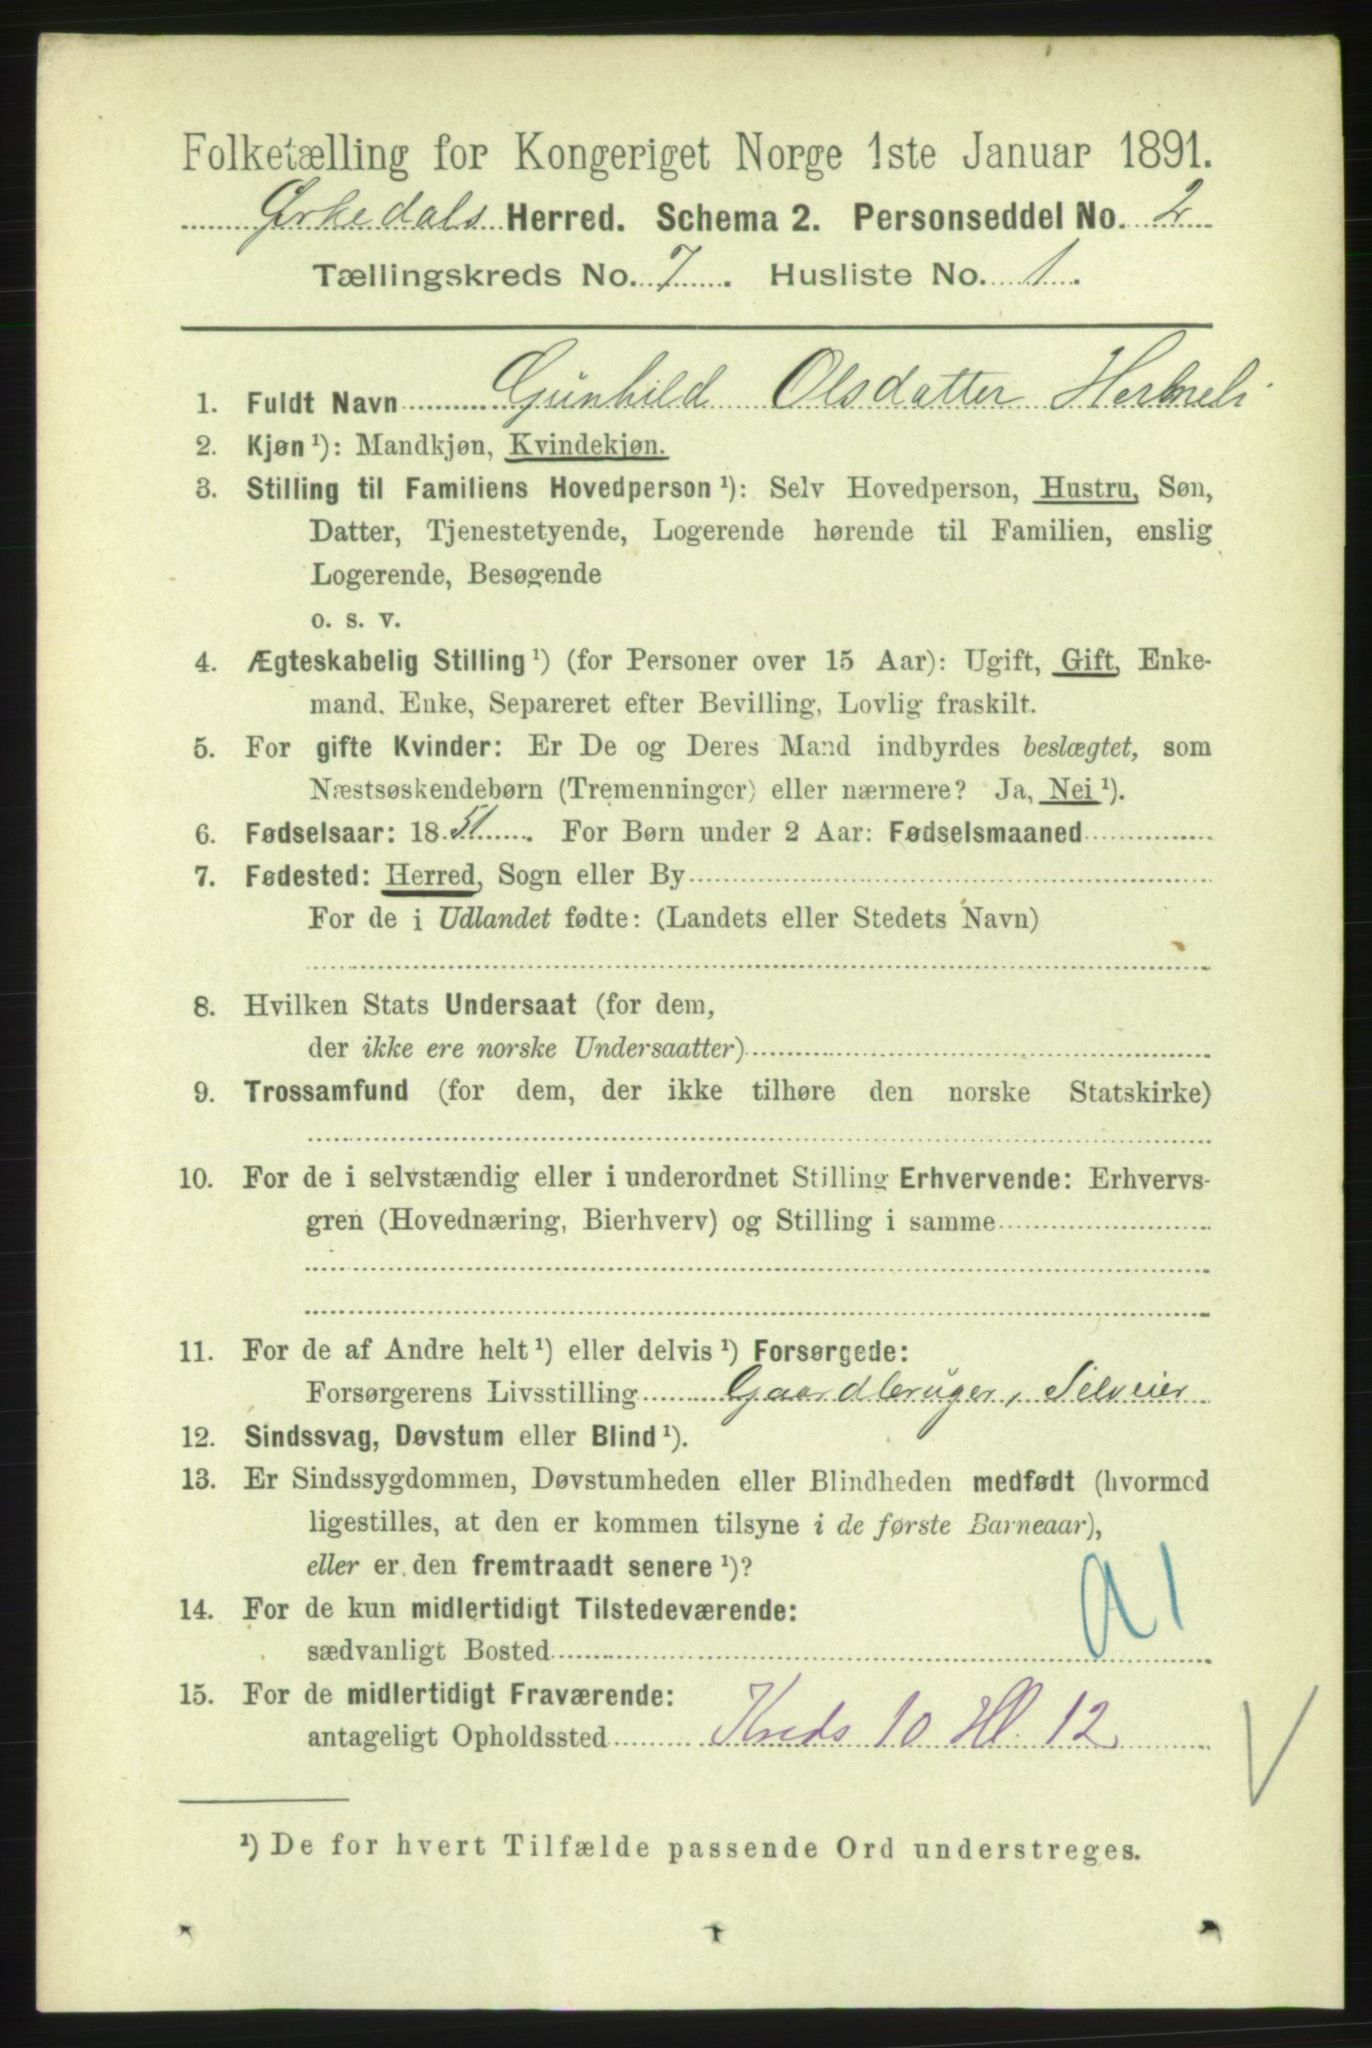 Folketælling for Kongeriget Norge 1ste Januar 1891.
Ørkedals Herred. Schema 2. Personseddel No. 2
Tællingskreds No. 7. Husliste No. 1.
1. Fuldt Navn Gunhild Olsdatter
2. Kjøn ¹): Mandkjøn, Kvindekjøn.
3. Stilling til Familiens Hovedperson ¹): Selv Hovedperson, Hustru, Søn,
Datter, Tjenestetyende, Logerende hørende til Familien, enslig
Logerende, Besøgende
o. s. v.
4. Ægteskabelig Stilling ¹) (for Personer over 15 Aar): Ugift, Gift, Enke-
mand, Enke, Separeret efter Bevilling, Lovlig fraskilt.
5. For gifte Kvinder: Er De og Deres Mand indbyrdes beslægtet, som
Næstsøskendebørn (Tremenninger) eller nærmere? Ja, Nei ¹).
6. Fødselsaar: 1851. For Børn under 2 Aar: Fødselsmaaned
7. Fødested: Herred, Sogn eller By
For de i Udlandet fødte: (Landets eller Stedets Navn)
8. Hvilken Stats Undersaat (for dem,
der ikke ere norske Undersaatter)
9. Trossamfund (for dem, der ikke tilhøre den norske Statskirke)
10. For de i selvstændig eller i underordnet Stilling Erhvervende: Erhvervs-
gren (Hovednæring, Bierhverv) og Stilling i samme
11. For de af Andre helt ¹) eller delvis ¹) Forsørgede:
Forsørgerens Livsstilling Gaardbruger, Selveier
12. Sindssvag, Døvstum eller Blind ¹).
13. Er Sindssygdommen, Døvstumheden eller Blindheden medfødt (hvormed
ligestilles, at den er kommen tilsyne i de første Barneaar),
eller er den fremtraadt senere ¹)?
14. For de kun midlertidigt Tilstedeværende:
sædvanligt Bosted
15. For de midlertidigt Fraværende:
antageligt Opholdssted Kreds 10 Hl. 12
¹) De for hvert Tilfælde passende Ord understreges.